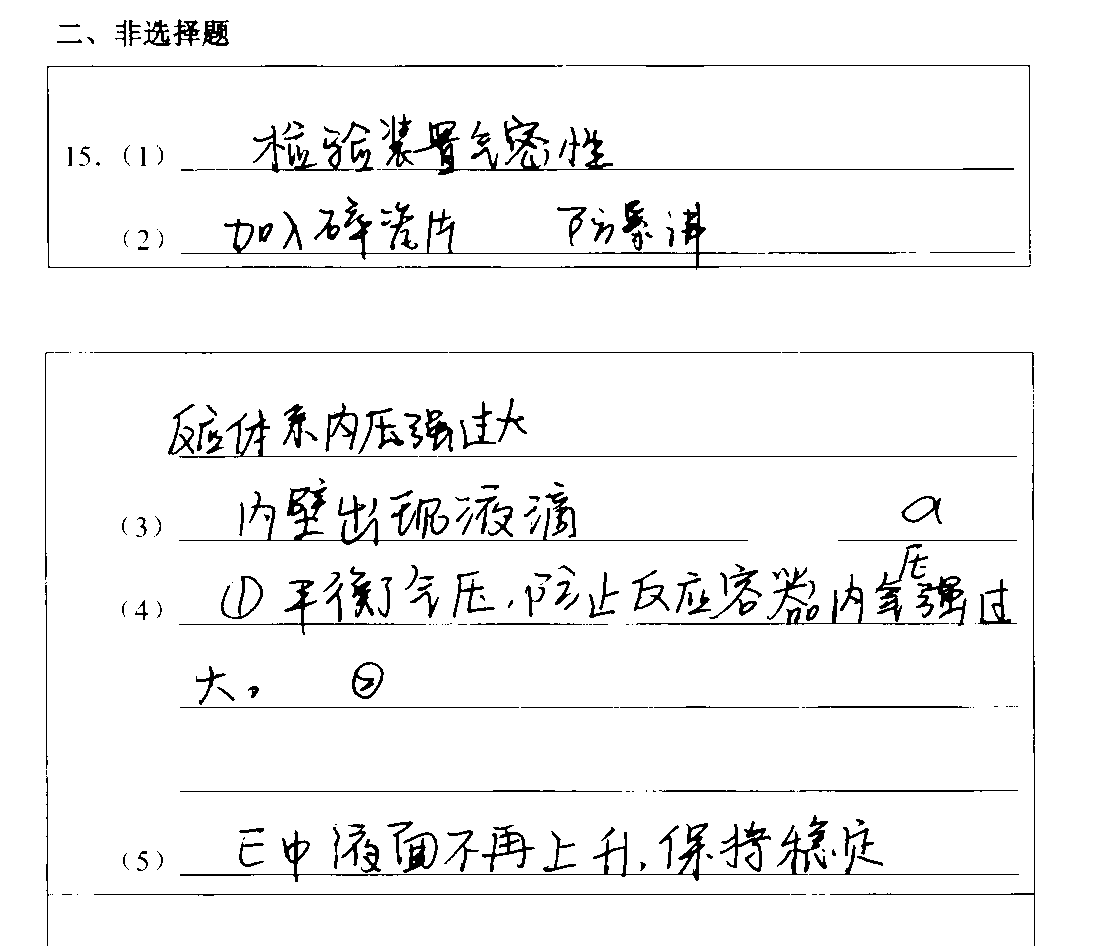 二、非选择题
15.（1） 检验装置气密性
（2） 加入碎瓷片 防暴沸
反应体系内压强过大
（3） 内壁出现液滴 a
（4） ①平衡了气压，防止反应容器内压强过
大。 ②
（5） E中液面不再上升，保持稳定